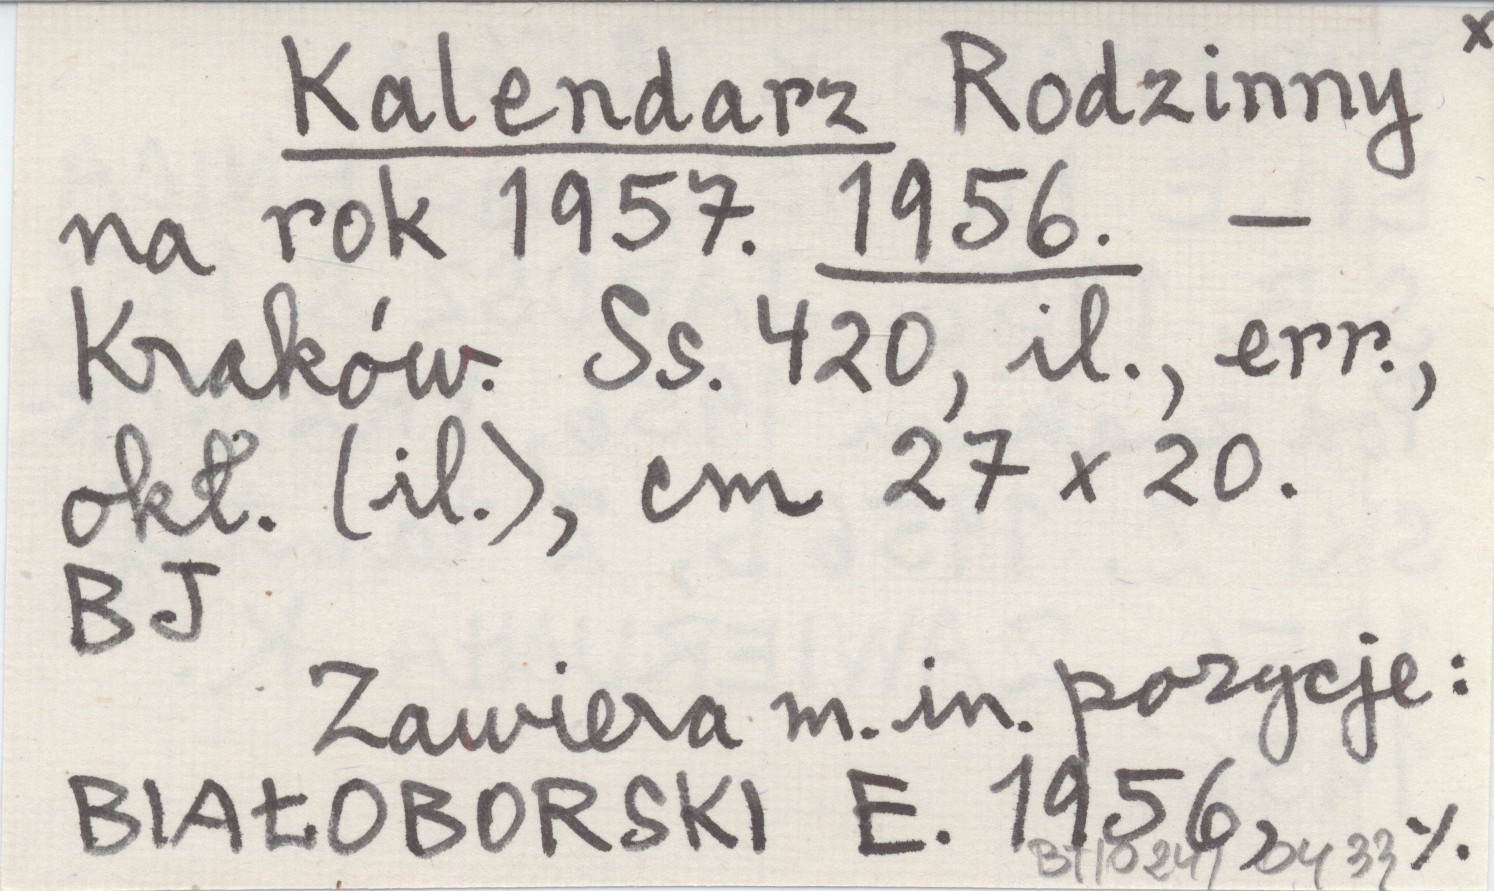 x
Kalendarz Rodzinny
na rok 1957. 1956. –
Kraków. Ss. 420, il., err.,
okł. (il.), cm 27 x 20.
BJ
Zawiera m. in. pozycje:
BIAŁOBORSKI E. 1956, ⁒.